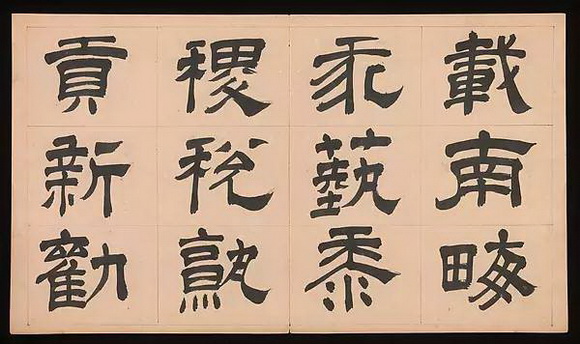 載南畮
我蓺黍
稷稅熟
貢新勸